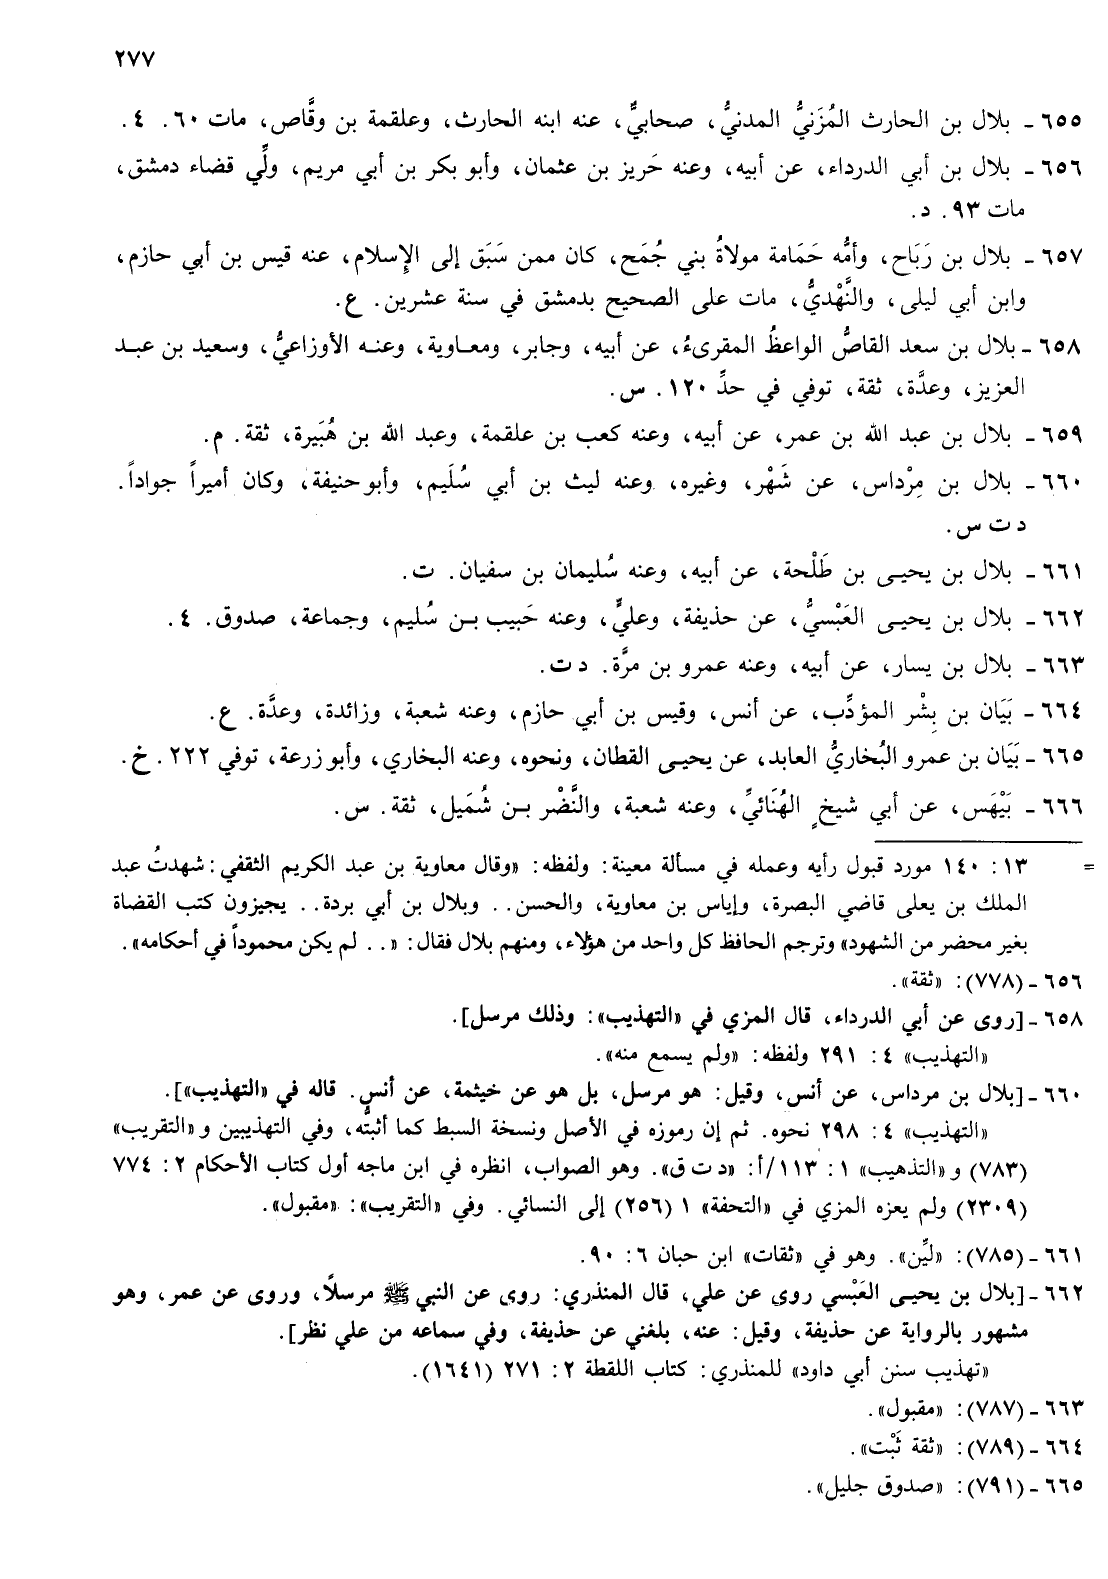 ٢٧٧
٦٥٥ ـ بلال بن الحارث المُزَنيُّ المدنيُّ، صحابيٌّ، عنه ابنه الحارث، وعلقمة بن وقَّاص، مات ٦٠. ٤.
٦٥٦ ـ بلال بن أبي الدرداء، عن أبيه، وعنه حَريز بن عثمان، وأبو بكر بن أبي مريم، ولِّي قضاء دمشق،
مات ٩٣. د.
٦٥٧ ـ بلال بن رَبَاح، وأمُّه حَمَامة مولاةُ بني جُمَح، كان ممن سَبَق إلى الإسلام، عنه قيس بن أبي حازم،
وابن أبي ليلى، والنَّهْديُّ، مات على الصحيح بدمشق في سنة عشرين. ع.
٦٥٨ ـ بلال بن سعد القاصُّ الواعظُ المقرىءُ، عن أبيه، وجابر، ومعاوية، وعنه الأوزاعيُّ، وسعيد بن عبد
العزيز، وعدَّة، ثقة، توفي في حدِّ ١٢٠. س.
٦٥٩ ـ بلال بن عبد الله بن عمر، عن أبيه، وعنه كعب بن علقمة، وعبد الله بن هُبَيرة، ثقة. م.
٦٦٠ ـ بلال بن مِرْداس، عن شَهْر، وغيره، وعنه ليث بن أبي سُلَيم، وأبو حنيفة، وكان أميراً جواداً.
د ت س.
٦٦١ ـ بلال بن يحيى بن طَلْحة، عن أبيه، وعنه سُليمان بن سفيان. ت.
٦٦٢ ـ بلال بن يحيى العَبْسيُّ، عن حذيفة، وعليٍّ، وعنه حَبيب بن سُليم، وجماعة، صدوق. ٤.
٦٦٣ ـ بلال بن يسار، عن أبيه، وعنه عمرو بن مرَّة. د ت.
٦٦٤ ـ بَيَان بن بِشْر المؤدِّب، عن أنس، وقيس بن أبي حازم، وعنه شعبة، وزائدة، وعدَّة. ع.
٦٦٥ ـ بَيَان بن عمرو البُخاريُّ العابد، عن يحيى القطان، ونحوه، وعنه البخاري، وأبو زرعة، توفي ٢٢٢. خ.
٦٦٦ ـ بَيْهَس، عن أبي شيخٍ الهُنَائيِّ، وعنه شعبة، والنَّضْر بن شُمَيل، ثقة. س.
= ١٣: ١٤٠ مورد قبول رأيه وعمله في مسألة معينة: ولفظه: «وقال معاوية بن عبد الكريم الثقفي: شهدتُ عبد
الملك بن يعلى قاضي البصرة، وإياس بن معاوية، والحسن.. وبلال بن أبي بردة.. يجيزون كتب القضاة
بغير محضر من الشهود» وترجم الحافظ كل واحد من هؤلاء، ومنهم بلال فقال: «.. لم يكن محموداً في أحكامه».
٦٥٦ ـ (٧٧٨): «ثقة».
٦٥٨ ـ [روى عن أبي الدرداء، قال المزي في «التهذيب»: وذلك مرسل].
«التهذيب» ٤: ٢٩١ ولفظه: «ولم يسمع منه».
٦٦٠ ـ [بلال بن مرداس، عن أنس، وقيل: هو مرسل، بل هو عن خيثمة، عن أنس. قاله في «التهذيب»].
«التهذيب» ٤: ٢٩٨ نحوه. ثم إن رموزه في الأصل ونسخة السبط كما أثبتُّه، وفي التهذيبين و«التقريب»
(٧٨٣) و«التذهيب» ١: ١١٣/أ: «د ت ق». وهو الصواب، انظره في ابن ماجه أول كتاب الأحكام ٢: ٧٧٤
(٢٣٠٩) ولم يعزه المزي في «التحفة» ١ (٢٥٦) إلى النسائي. وفي «التقريب»: «مقبول».
٦٦١ ـ (٧٨٥): «ليِّن». وهو في «ثقات» ابن حبان ٦: ٩٠.
٦٦٢ ـ [بلال بن يحيى العَبْسي روى عن علي، قال المنذري: روى عن النبي ﷺ مرسلاً، وروى عن عمر، وهو
مشهور بالرواية عن حذيفة، وقيل: عنه، بلغني عن حذيفة، وفي سماعه من علي نظر].
«تهذيب سنن أبي داود» للمنذري: كتاب اللقطة ٢: ٢٧١ (١٦٤١).
٦٦٣ ـ (٧٨٧): «مقبول».
٦٦٤ ـ (٧٨٩): «ثقة ثَبْت».
٦٦٥ ـ (٧٩١): «صدوق جليل».